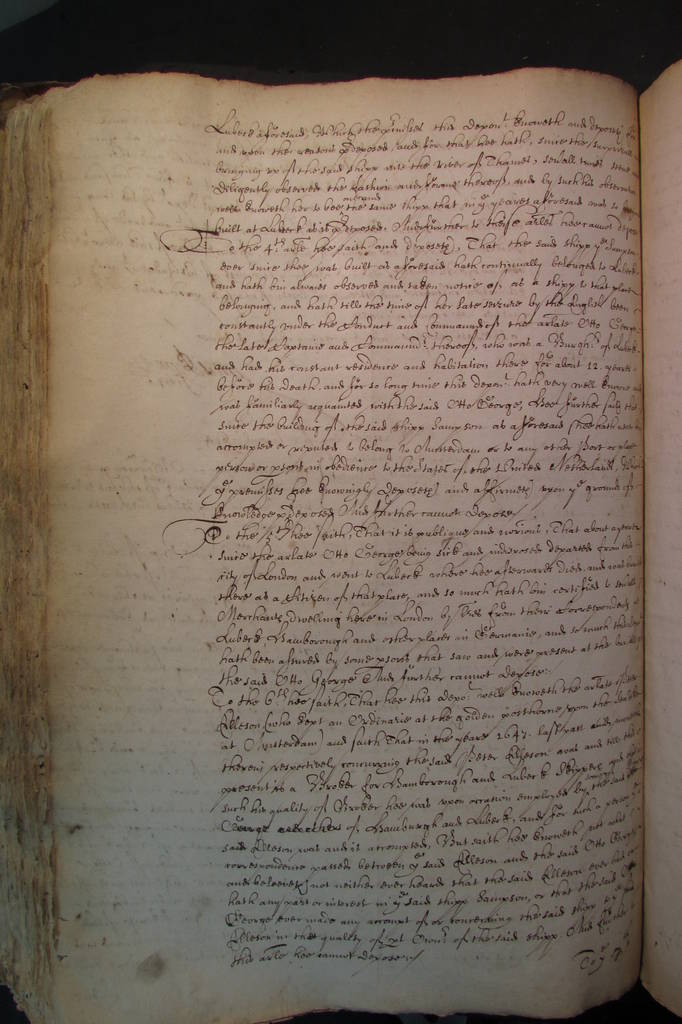 Lubeck aforesaid, Which the pr̃misses this depon.t knoweth and deposeth
and upon the reasons p̃deposed, and for that hee hath, since the
bringing up of the said shipp into the River of Thames, severall times
diligently observed the fashion and forme thereof, and by such his observation
well knoweth her to bee the same shipp that in y.e yeares aforesaid was so
built at Lubeck as is p̃deposed. And further to these arles hee cannot depose
To the 4.th arle hee saith and deposeth, That the said shipp y.e Sampson
ever since shee was built as aforesaid hath continually belonged to Lubeck
and hath bin alwaies observed and taken notice of, as a shipp to that place
belonging, and hath till the time of her late seizure by the English been
constantly under the Conduct and Command of the arlate Otto George
the late Captaine and Command.r thereof, who was a Burgh.r of Lubeck
and had his constant residence and habitation there for about 12. yeares
before his death, and for so long time this depon.t hath very well knowne and
was familiarly acquainted with the said Otto George, Hee further saith that
since the building of the said shipp Sampson as aforesaid shee hath not bin
accompted or reputed to belong to Amsterdam or to any other Port or place
person or p̃sons in obedience to the States of the United Netherlands,
y.e premisses hee knowingly deposeth and affirmeth upon y.e grounds of
knowledge p̃deposed And further cannot depose.
To the 5.th hee saith, That it is publique and notorious, That about a yeare
since the arlate Otto George being sick and indisposed departed from this
city of London and went to Lubeck where hee afterwards died, and was buried
there as a Citizen of that place, and so much hath bin certified to severall
Merchants, dwelling here in London by tres from their Correspondents at
Lubeck, Hamborough and other places in Germanie, and so much this depon.t
hath been assured by some p̃sons that saw and were present at the buriall of
the said Otto George And further cannot depose.
To the 6.th hee saith, That hee this depo.t well knoweth the arlate Peter
Elleson (who kept an Ordinarie at the golden posthorne upon the
at Amsterdam) and saith That in the yeare 1647. last past and
therein respectively concurring the said Peter Elleson was and till this
present is a Broker for Hamborough and Lubeck Skippers and in
such his quality of Broker hee was upon occasion employed by the said Otto
George and others of Hamburgh and Lubeck, and for such a person the
said Elleson was and is accompted, But saith hee knoweth not what
correspondence passed betweene y.e said Elleson and the said Otto George
and beleeveth not neither ever heard that the said Elleson ever had or
hath any part or interest in y.e said shipp Sampson, or that the said Otto
George ever made any accompt of or concerning the said shipp to y.e said
Elleson in the quality of Own.r of the said shipp. And further to
this arle hee cannot depose./
To y.e